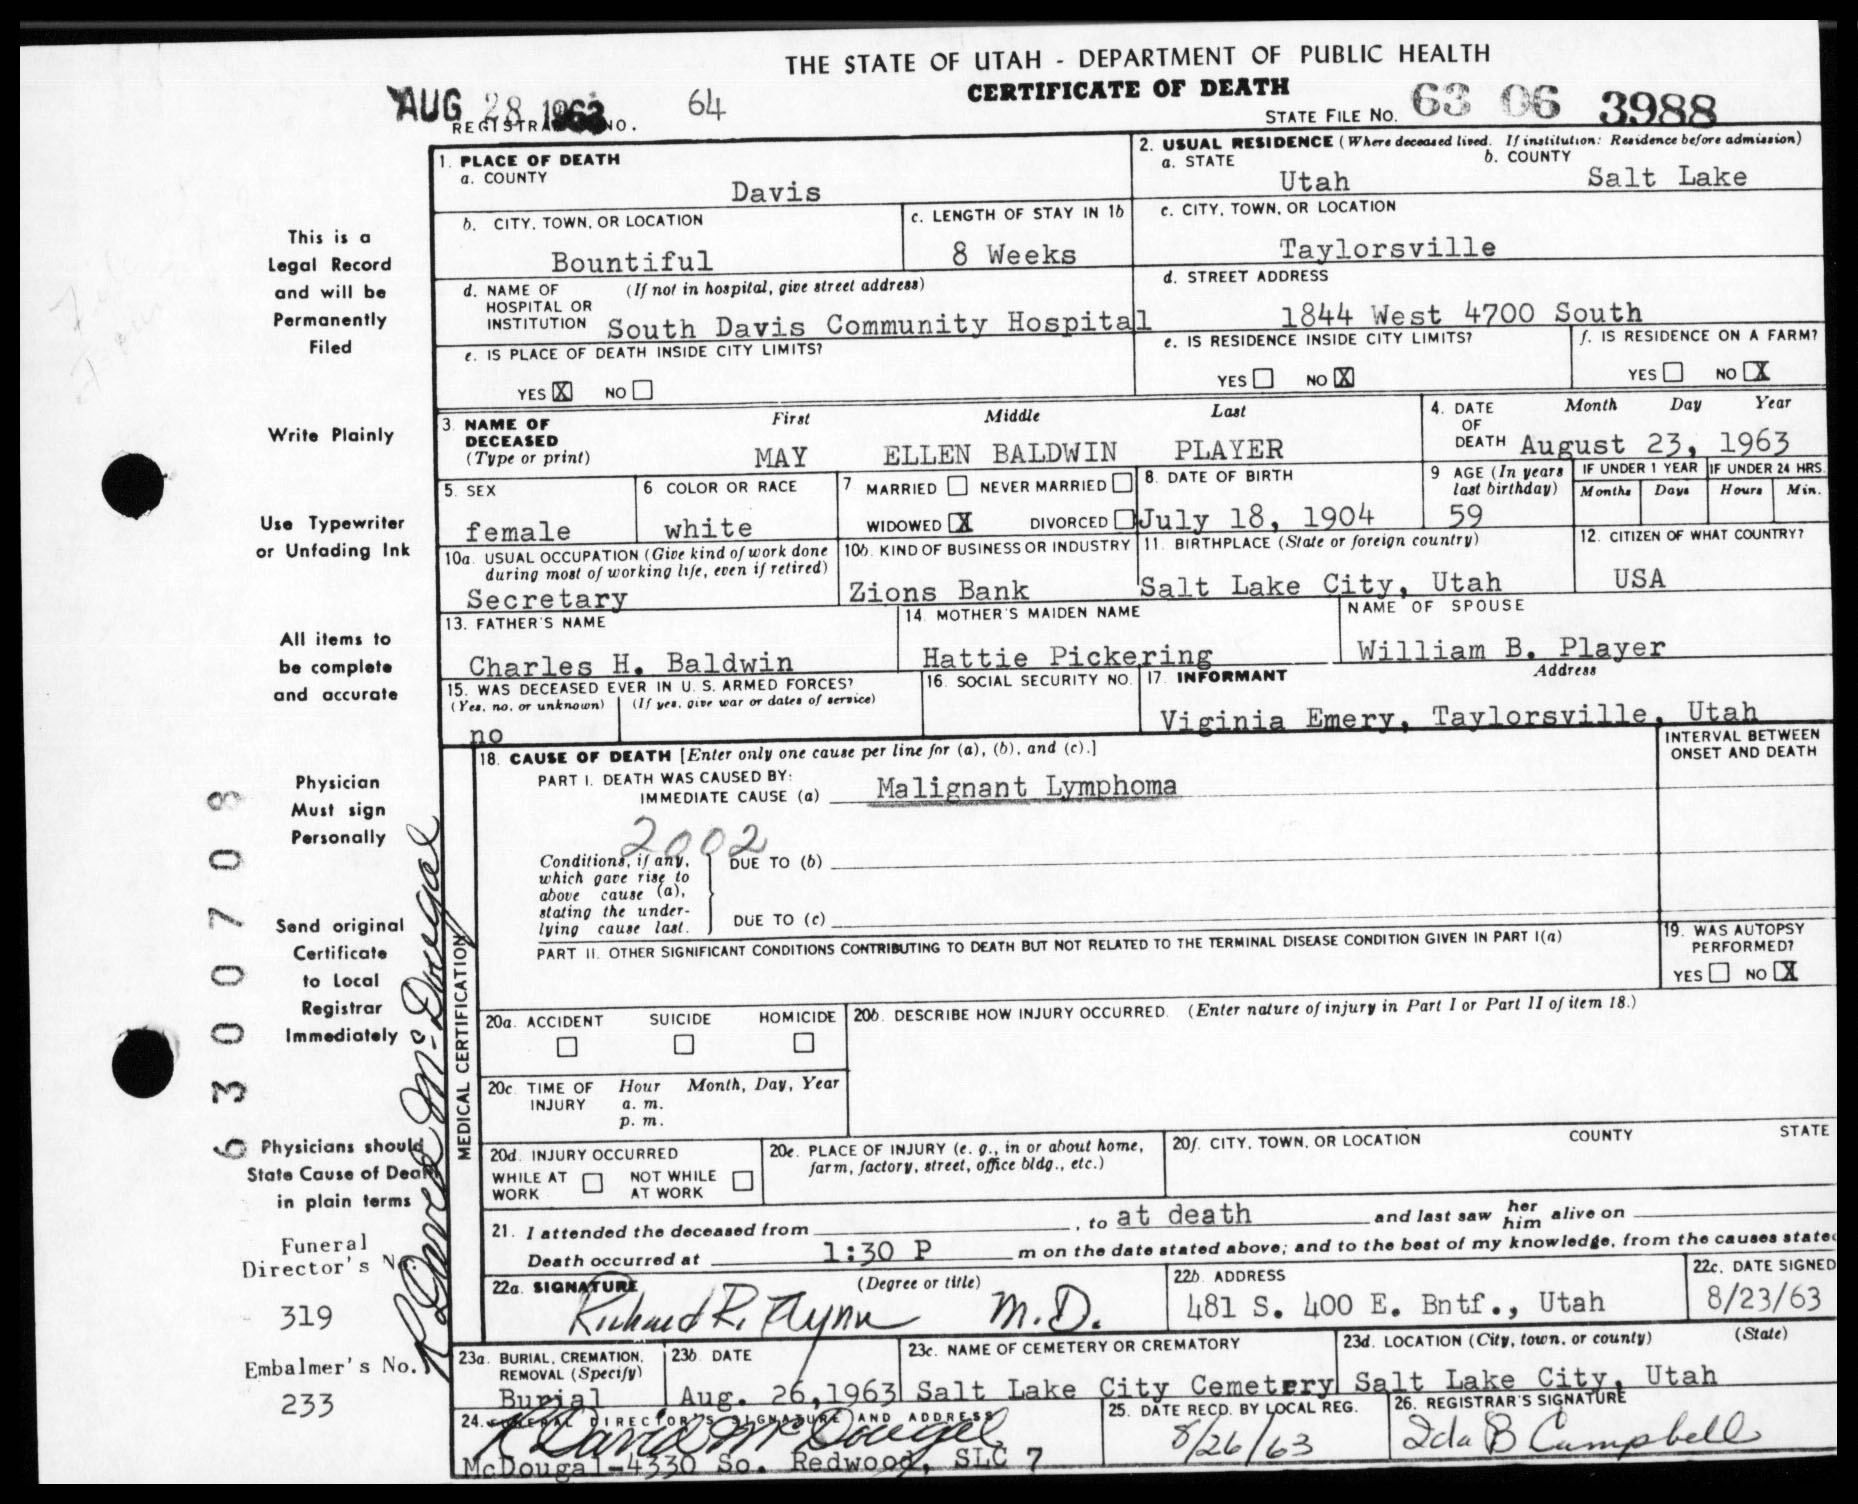 THE STATE OF UTAH - DEPARTMENT OF PUBLIC HEALTH
CERTIFICATE OF DEATH
AUG 28 1963
REGISTRAR'S NO. 64
STATE FILE NO. 63 06 3988
1. PLACE OF DEATH
a. COUNTY
Davis
2. USUAL RESIDENCE (Where deceased lived. If institution: Residence before admission)
a. STATE
Utah
b. COUNTY
Salt Lake
b. CITY, TOWN, OR LOCATION
Bountiful
c. LENGTH OF STAY IN 1b
8 Weeks
c. CITY, TOWN, OR LOCATION
Taylorsville
d. NAME OF (If not in hospital, give street address)
HOSPITAL OR
INSTITUTION South Davis Community Hospital
d. STREET ADDRESS
1844 West 4700 South
e. IS PLACE OF DEATH INSIDE CITY LIMITS?
YES X NO
e. IS RESIDENCE INSIDE CITY LIMITS?
YES NO X
f. IS RESIDENCE ON A FARM?
YES NO X
3. NAME OF
DECEASED
(Type or print)
First Middle Last
MAY ELLEN BALDWIN PLAYER
4. DATE
OF
DEATH
Month Day Year
August 23, 1963
5. SEX
female
6 COLOR OR RACE
white
7 MARRIED NEVER MARRIED
WIDOWED X DIVORCED
8. DATE OF BIRTH
July 18, 1904
9 AGE (In years
last birthday)
59
IF UNDER 1 YEAR
Months Days
IF UNDER 24 HRS.
Hours Min.
10a. USUAL OCCUPATION (Give kind of work done
during most of working life, even if retired)
Secretary
10b. KIND OF BUSINESS OR INDUSTRY
Zions Bank
11. BIRTHPLACE (State or foreign country)
Salt Lake City, Utah
12. CITIZEN OF WHAT COUNTRY?
USA
13. FATHER'S NAME
Charles H. Baldwin
14. MOTHER'S MAIDEN NAME
Hattie Pickering
NAME OF SPOUSE
William B. Player
15. WAS DECEASED EVER IN U. S. ARMED FORCES?
(Yes, no, or unknown) (If yes, give war or dates of service)
no
16. SOCIAL SECURITY NO.
17. INFORMANT Address
Viginia Emery, Taylorsville, Utah
MEDICAL CERTIFICATION
18. CAUSE OF DEATH [Enter only one cause per line for (a), (b), and (c).]
PART I. DEATH WAS CAUSED BY:
IMMEDIATE CAUSE (a) Malignant Lymphoma
INTERVAL BETWEEN
ONSET AND DEATH
2002
Conditions, if any,
which gave rise to
above cause (a),
stating the under-
lying cause last.
DUE TO (b)
DUE TO (c)
PART II. OTHER SIGNIFICANT CONDITIONS CONTRIBUTING TO DEATH BUT NOT RELATED TO THE TERMINAL DISEASE CONDITION GIVEN IN PART I(a)
19. WAS AUTOPSY
PERFORMED?
YES NO X
20a. ACCIDENT SUICIDE HOMICIDE
20b. DESCRIBE HOW INJURY OCCURRED. (Enter nature of injury in Part I or Part II of item 18.)
20c. TIME OF Hour Month, Day, Year
INJURY a. m.
p. m.
20d. INJURY OCCURRED
WHILE AT
WORK
NOT WHILE
AT WORK
20e. PLACE OF INJURY (e. g., in or about home,
farm, factory, street, office bldg., etc.)
20f. CITY, TOWN, OR LOCATION COUNTY STATE
21. I attended the deceased from , to at death and last saw her him alive on
Death occurred at 1:30 P m on the date stated above; and to the best of my knowledge, from the causes stated
22a. SIGNATURE (Degree or title)
Richard R. Flynn M.D.
22b. ADDRESS
481 S. 400 E. Bntf., Utah
22c. DATE SIGNED
8/23/63
23a. BURIAL, CREMATION,
REMOVAL (Specify)
Burial
23b. DATE
Aug. 26, 1963
23c. NAME OF CEMETERY OR CREMATORY
Salt Lake City Cemetery
23d. LOCATION (City, town, or county) (State)
Salt Lake City, Utah
24. FUNERAL DIRECTOR'S SIGNATURE AND ADDRESS
R David McDougal
McDougal-4330 So. Redwood, SLC 7
25. DATE RECD. BY LOCAL REG.
8/26/63
26. REGISTRAR'S SIGNATURE
Ida B Campbell
This is a
Legal Record
and will be
Permanently
Filed
Write Plainly
Use Typewriter
or Unfading Ink
All items to
be complete
and accurate
Physician
Must sign
Personally
Send original
Certificate
to Local
Registrar
Immediately
Physicians should
State Cause of Death
in plain terms
Funeral
Director's No.
319
Embalmer's No.
233
6300708
R David McDougal